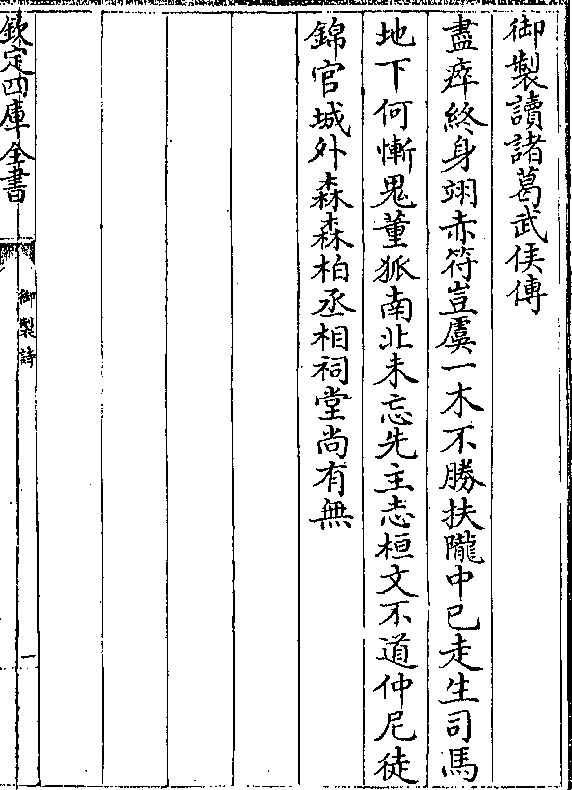 御製讀諸葛武侯傳
盡瘁終身翊赤符豈虞一木不勝扶隴中已走生司馬
地下何慚鬼董狐南北未忘先主志桓文不道仲尼徒
錦官城外森森柏丞相祠堂尚有無
欽定四庫全書
御製詩
一